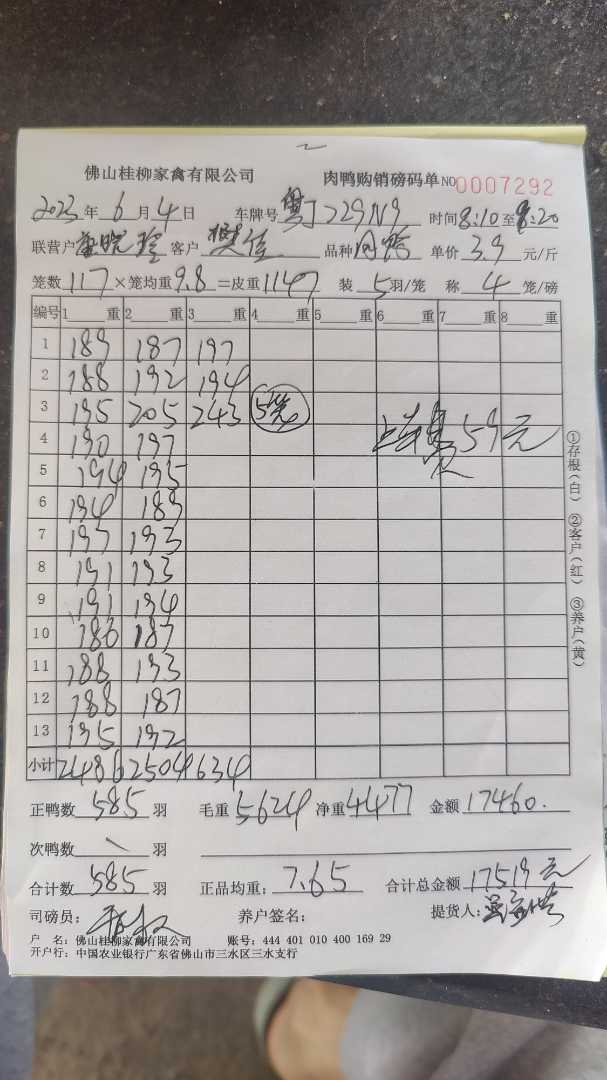 佛山桂柳家禽有限公司 肉鸭购销磅码单 NO 0007292
2023年6月4日 车牌号 粤J229N9 时间8:10至8:20
联营户 客户 樊佳 品种 肉鸭 单价 3.9 元/斤
笼数 117 ×笼均重 9.8 =皮重 1147 装 5 羽/笼 称 4 笼/磅
编号 1 重 2 重 3 重 4 重 5 重 6 重 7 重 8 重
1 189 187 197
2 188 192 194
3 195 205 243 5笼 59元
4 190 197
5 194 195
6 194 189
7 197 193
8 191 193
9 191 194
10 186 187
11 188 193
12 188 187
13 195 192
小计 2486 2504 634
①存根(白) ②客户(红) ③养户(黄)
正鸭数 585 羽 毛重 5624 净重 4477 金额 17460.
次鸭数 \ 羽
合计数 585 羽 正品均重: 7.65 合计总金额 17519元
司磅员: 养户签名: 提货人:
户 名: 佛山桂柳家禽有限公司 账号: 444 401 010 400 169 29
开户行: 中国农业银行广东省佛山市三水区三水支行